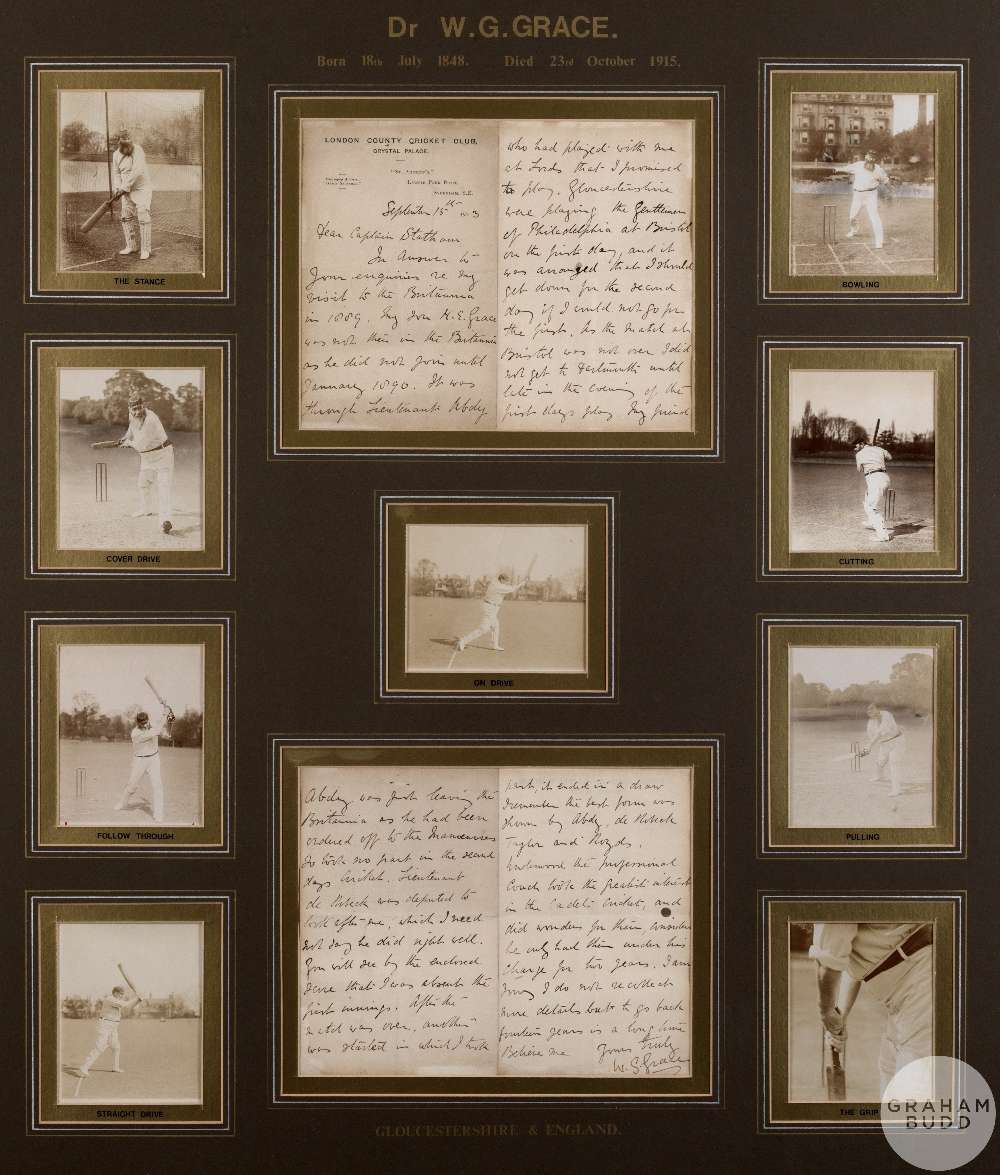 Dr W.G.GRACE.
Born 18th July 1848. Died 23rd October 1915.
THE STANCE
COVER DRIVE
FOLLOW THROUGH
STRAIGHT DRIVE
LONDON COUNTY CRICKET CLUB,
CRYSTAL PALACE.
LAWRIE PARK ROAD,
SYDENHAM, S.E.
September 15th 03
Dear Captain Statham
In Answer to
Your enquiries re my
visit to the Britannia
in 1889. My Son H.E. Grace
was not then in the Britannia
as he did not join until
January 1890. It was
through Lieutenant Abdy
who had played with me
at Lords that I promised
to play. Gloucestershire
were playing the Gentlemen
of Philadelphia at Bristol
on the first day, and it
was arranged that I should
get down for the second
day if I could not go for
the first. As the match at
Bristol was not over I did
not get to Dartmouth until
late in the evening of the
first days play My friend
ON DRIVE
Abdy was just leaving the
Britannia as he had been
ordered off to the Manoeuvres
so took no part in the second
days cricket. Lieutenant
de Robeck was deputed to
look after me, which I need
not say he did right well.
You will see by the enclosed
score that I was absent the
first innings. After the
match was over, another
was started in which I took
part, it ended in a draw
I remember the best form was
shown by Abdy, de Robeck
Taylor and
Underwood the Professional
Coach took the greatest interest
in the Cadets cricket, and
did wonders for them
he only had them under his
charge for two years. I am
sorry I do not recollect
more details but to go back
fourteen years is a long time
Believe me Yours truly
W. G. Grace
BOWLING
CUTTING
PULLING
THE GRIP
GLOUCESTERSHIRE & ENGLAND.
GRAHAM
BUDD